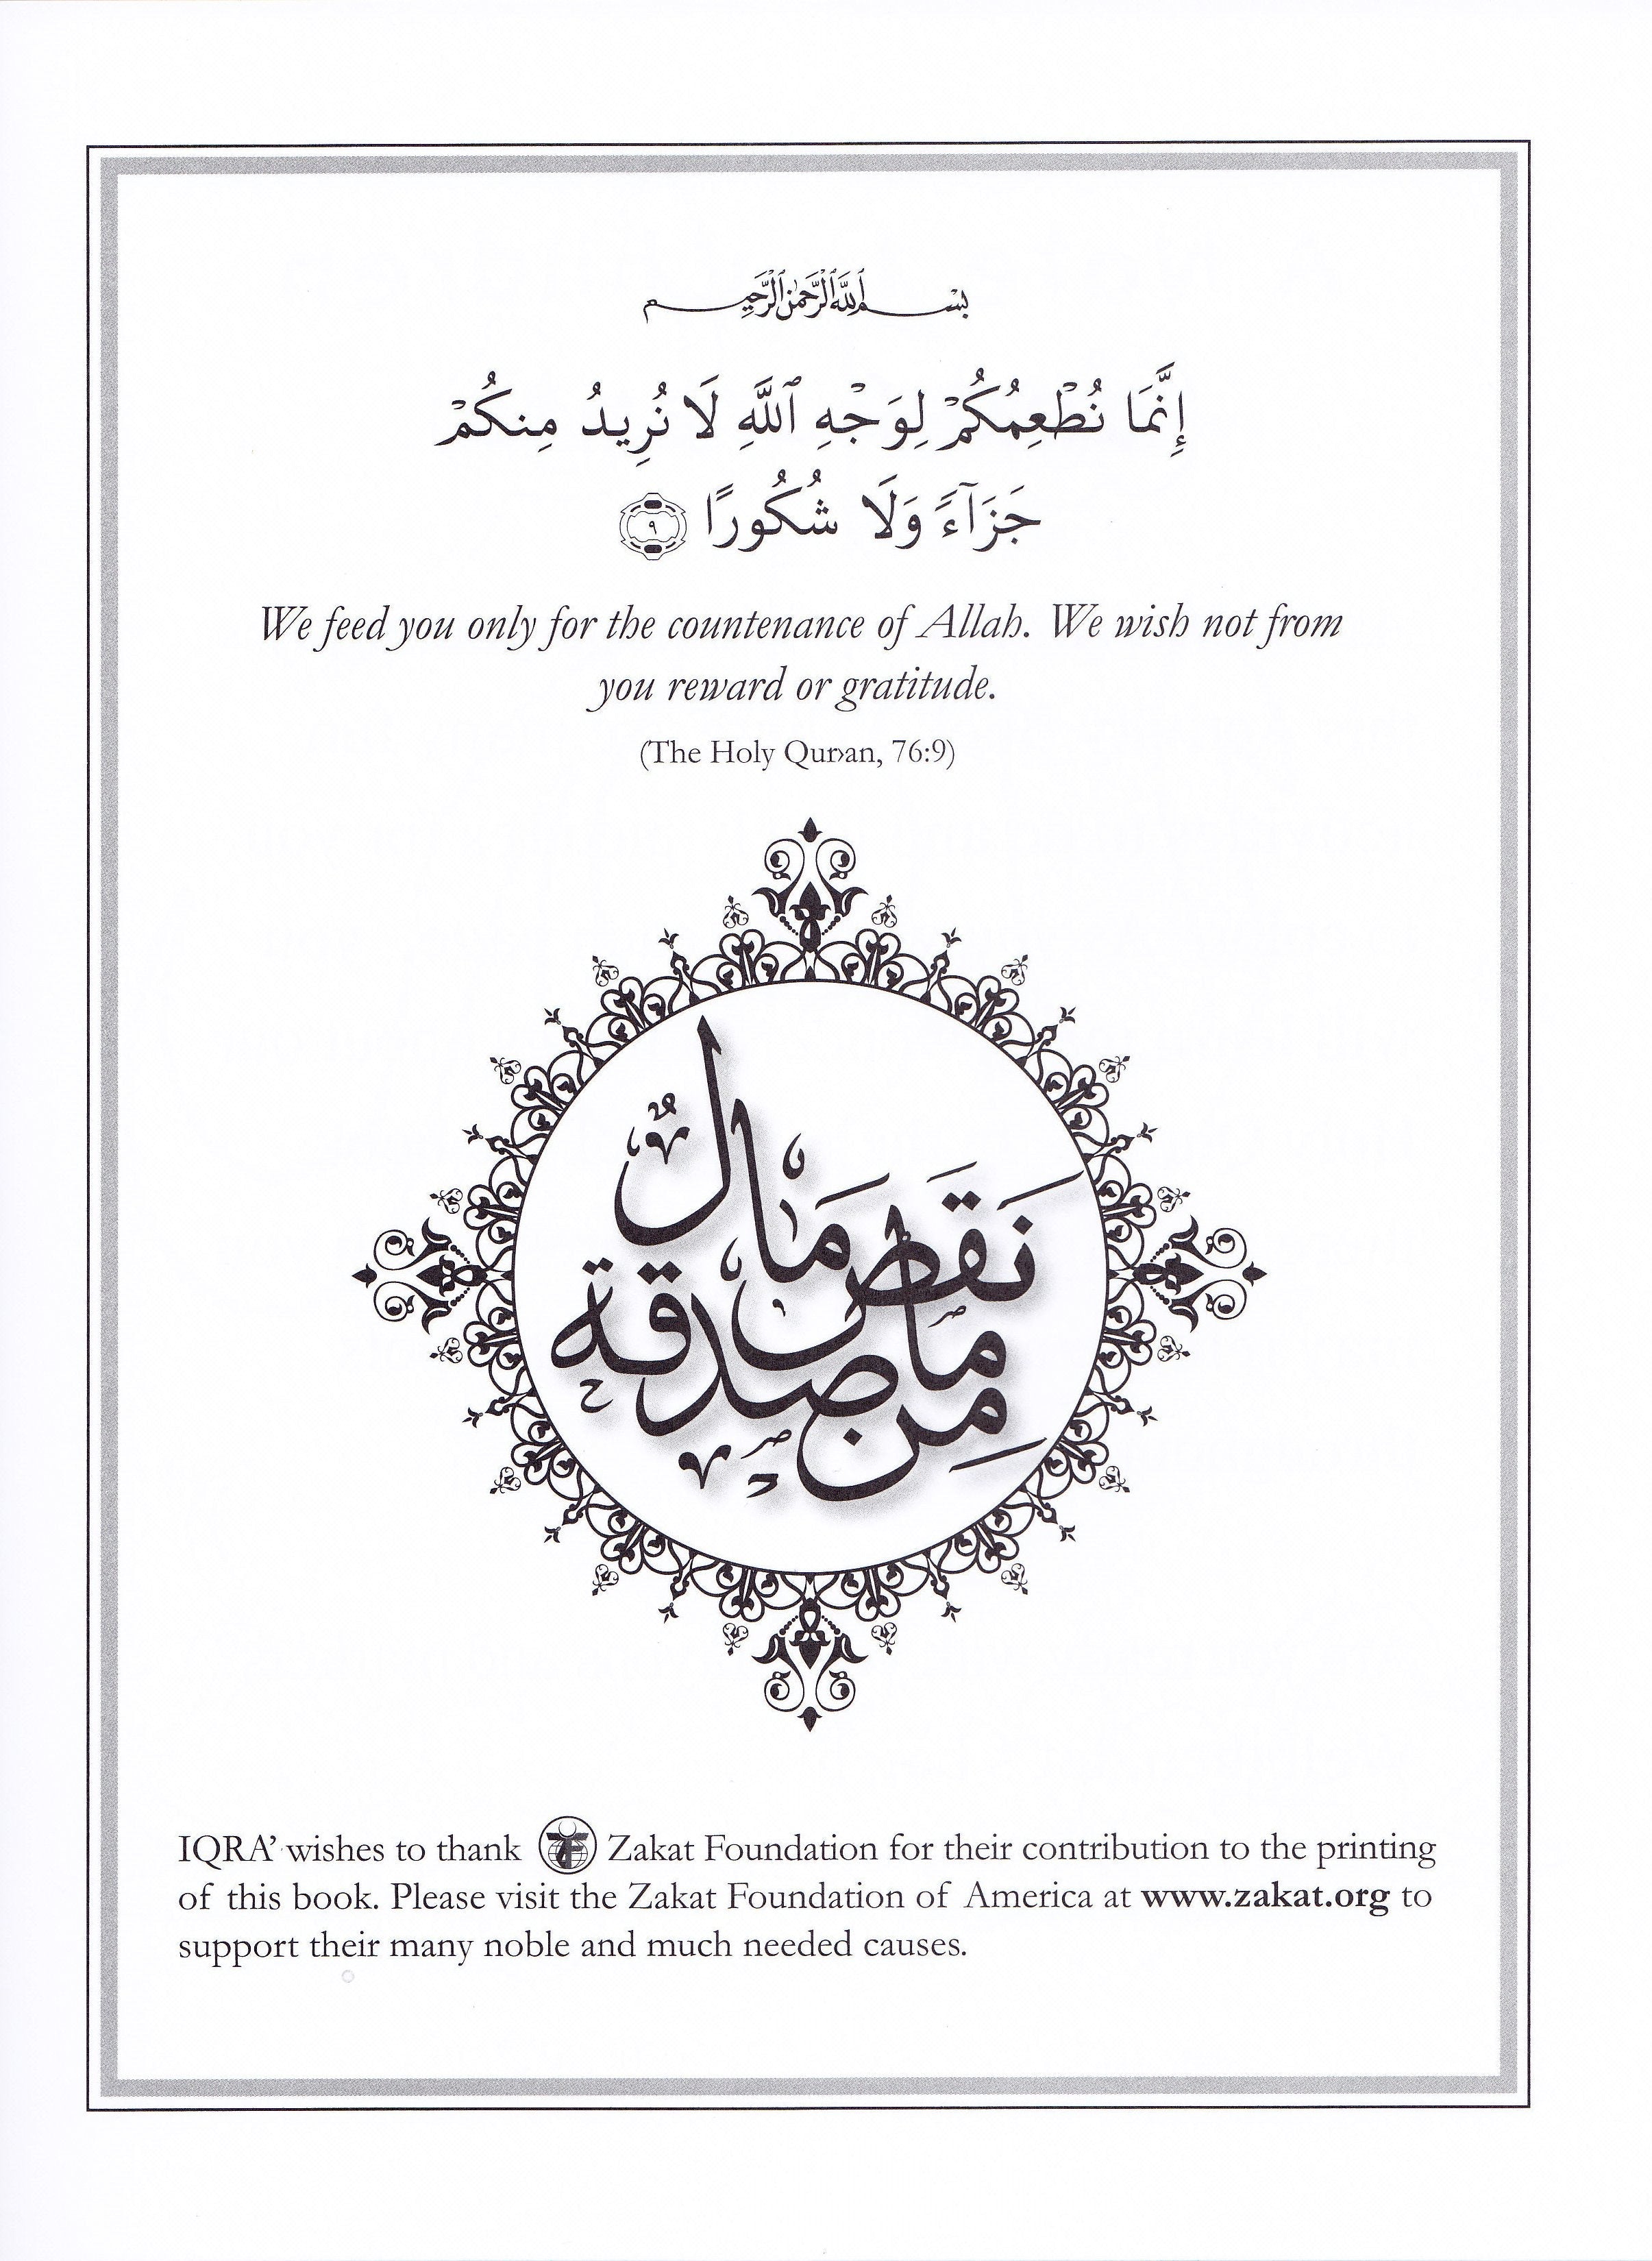 بِسْمِ ٱللَّهِ ٱلرَّحْمَٰنِ ٱلرَّحِيمِ
إِنَّمَا نُطْعِمُكُمْ لِوَجْهِ ٱللَّهِ لَا نُرِيدُ مِنكُمْ
جَزَآءً وَلَا شُكُورًا ٩
We feed you only for the countenance of Allah. We wish not from
you reward or gratitude.
(The Holy Qur›an, 76:9)
مَا نَقَصَ مَالٌ
مِنْ صَدَقَةٍ
IQRA’ wishes to thank ZF Zakat Foundation for their contribution to the printing
of this book. Please visit the Zakat Foundation of America at www.zakat.org to
support their many noble and much needed causes.